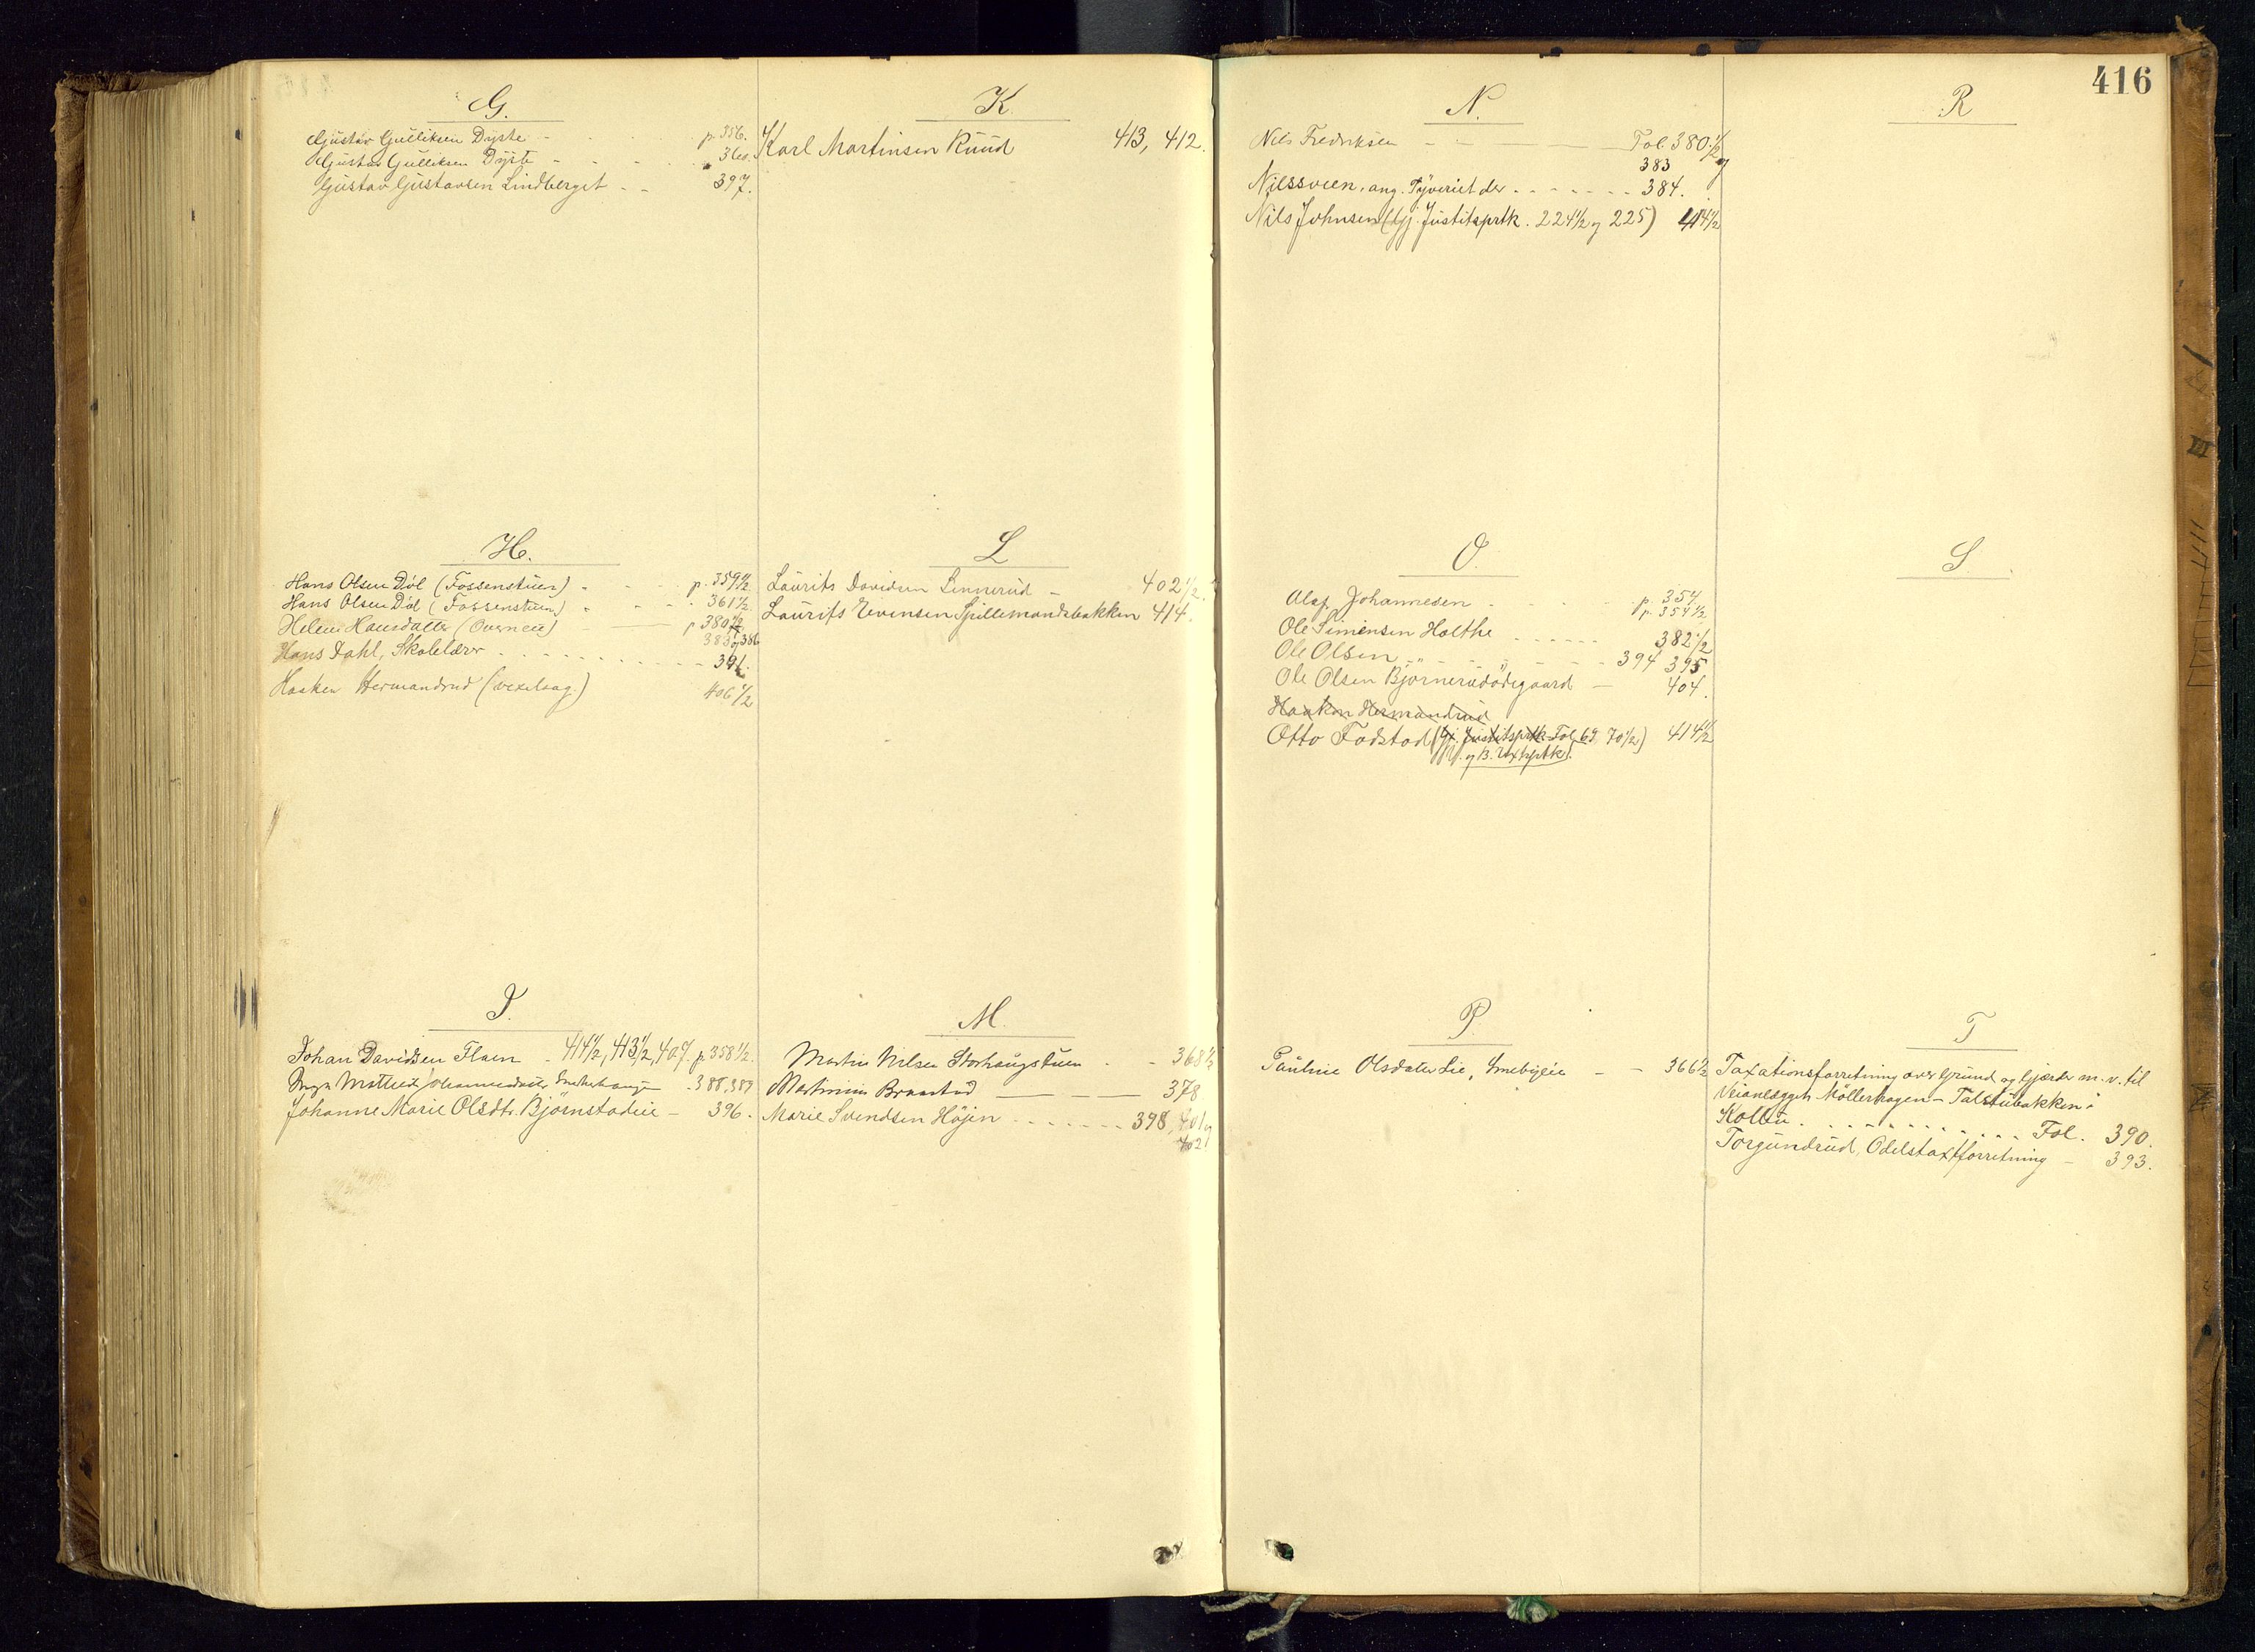 G.
Gustav Gulliksen Dyste - p. 356.
Gustav Gulliksen Dyste - - - - 360.
Gustav Gustavsen Lindberget - - 397.
H.
Hans Olsen Döl (Fossenstuen) - - p. 359½.
Hans Olsen Döl (Fossenstuen) - - - 361½.
Helene Hansdatter (Overneie) p 380½
383 og 386
Hans Dahl, Skolelærer - - - - - - - - - 391.
Haaken Hermandrud (vexelsag.) 406½
I.
Johan Davidsen Flaen - 414½, 413½, 407. p 358½.
Johannesdatter - 388.389
Johanne Marie Olsdtr. Björnstadeie - 396.
K
Karl Martinsen Ruud 413, 412.
L
Laurits Davidsen Linnerud - 402½.
Laurits Evensen Spillemandsbakken 414.
M.
Martin Nilsen Storhaugstuen - - 368½
Martinius Braastad - - - 378
Marie Svendsen Höjen - - - - - - - 398, 401 og
402.
416
N.
Nils Fredriksen - - - Fol. 380½
383 og
Nilssveen, ang. Tyveriet der - - - - - - - 384.
Nils Johnsen (Gj. Justitsprtk. 224½ og 225) 414½
O.
Olaf Johannesen - - - - p. 354
p. 354½
Ole Simensen Holthe - - - - - - 382½
Ole Olsen - - - - - - - 394 395
Ole Olsen Björnerudödegaard - 404.
Haakon Hermandrud
Otto Fodstad (Gj. Justitsprtk. Fol. 69. 70½) 414½
og B. Extrprtk).
P.
Pauline Olsdatter Lie, Smebyeie - - 366½
R
S.
T
Taxationsforretning over Grund og Gjærder m. v. til
Veianlægget Möllerhagen - Talstubakken i
Kolbu. - - - - - - - - - - Fol. 390.
Torgundrud, Odelstaxtforretning - 393.